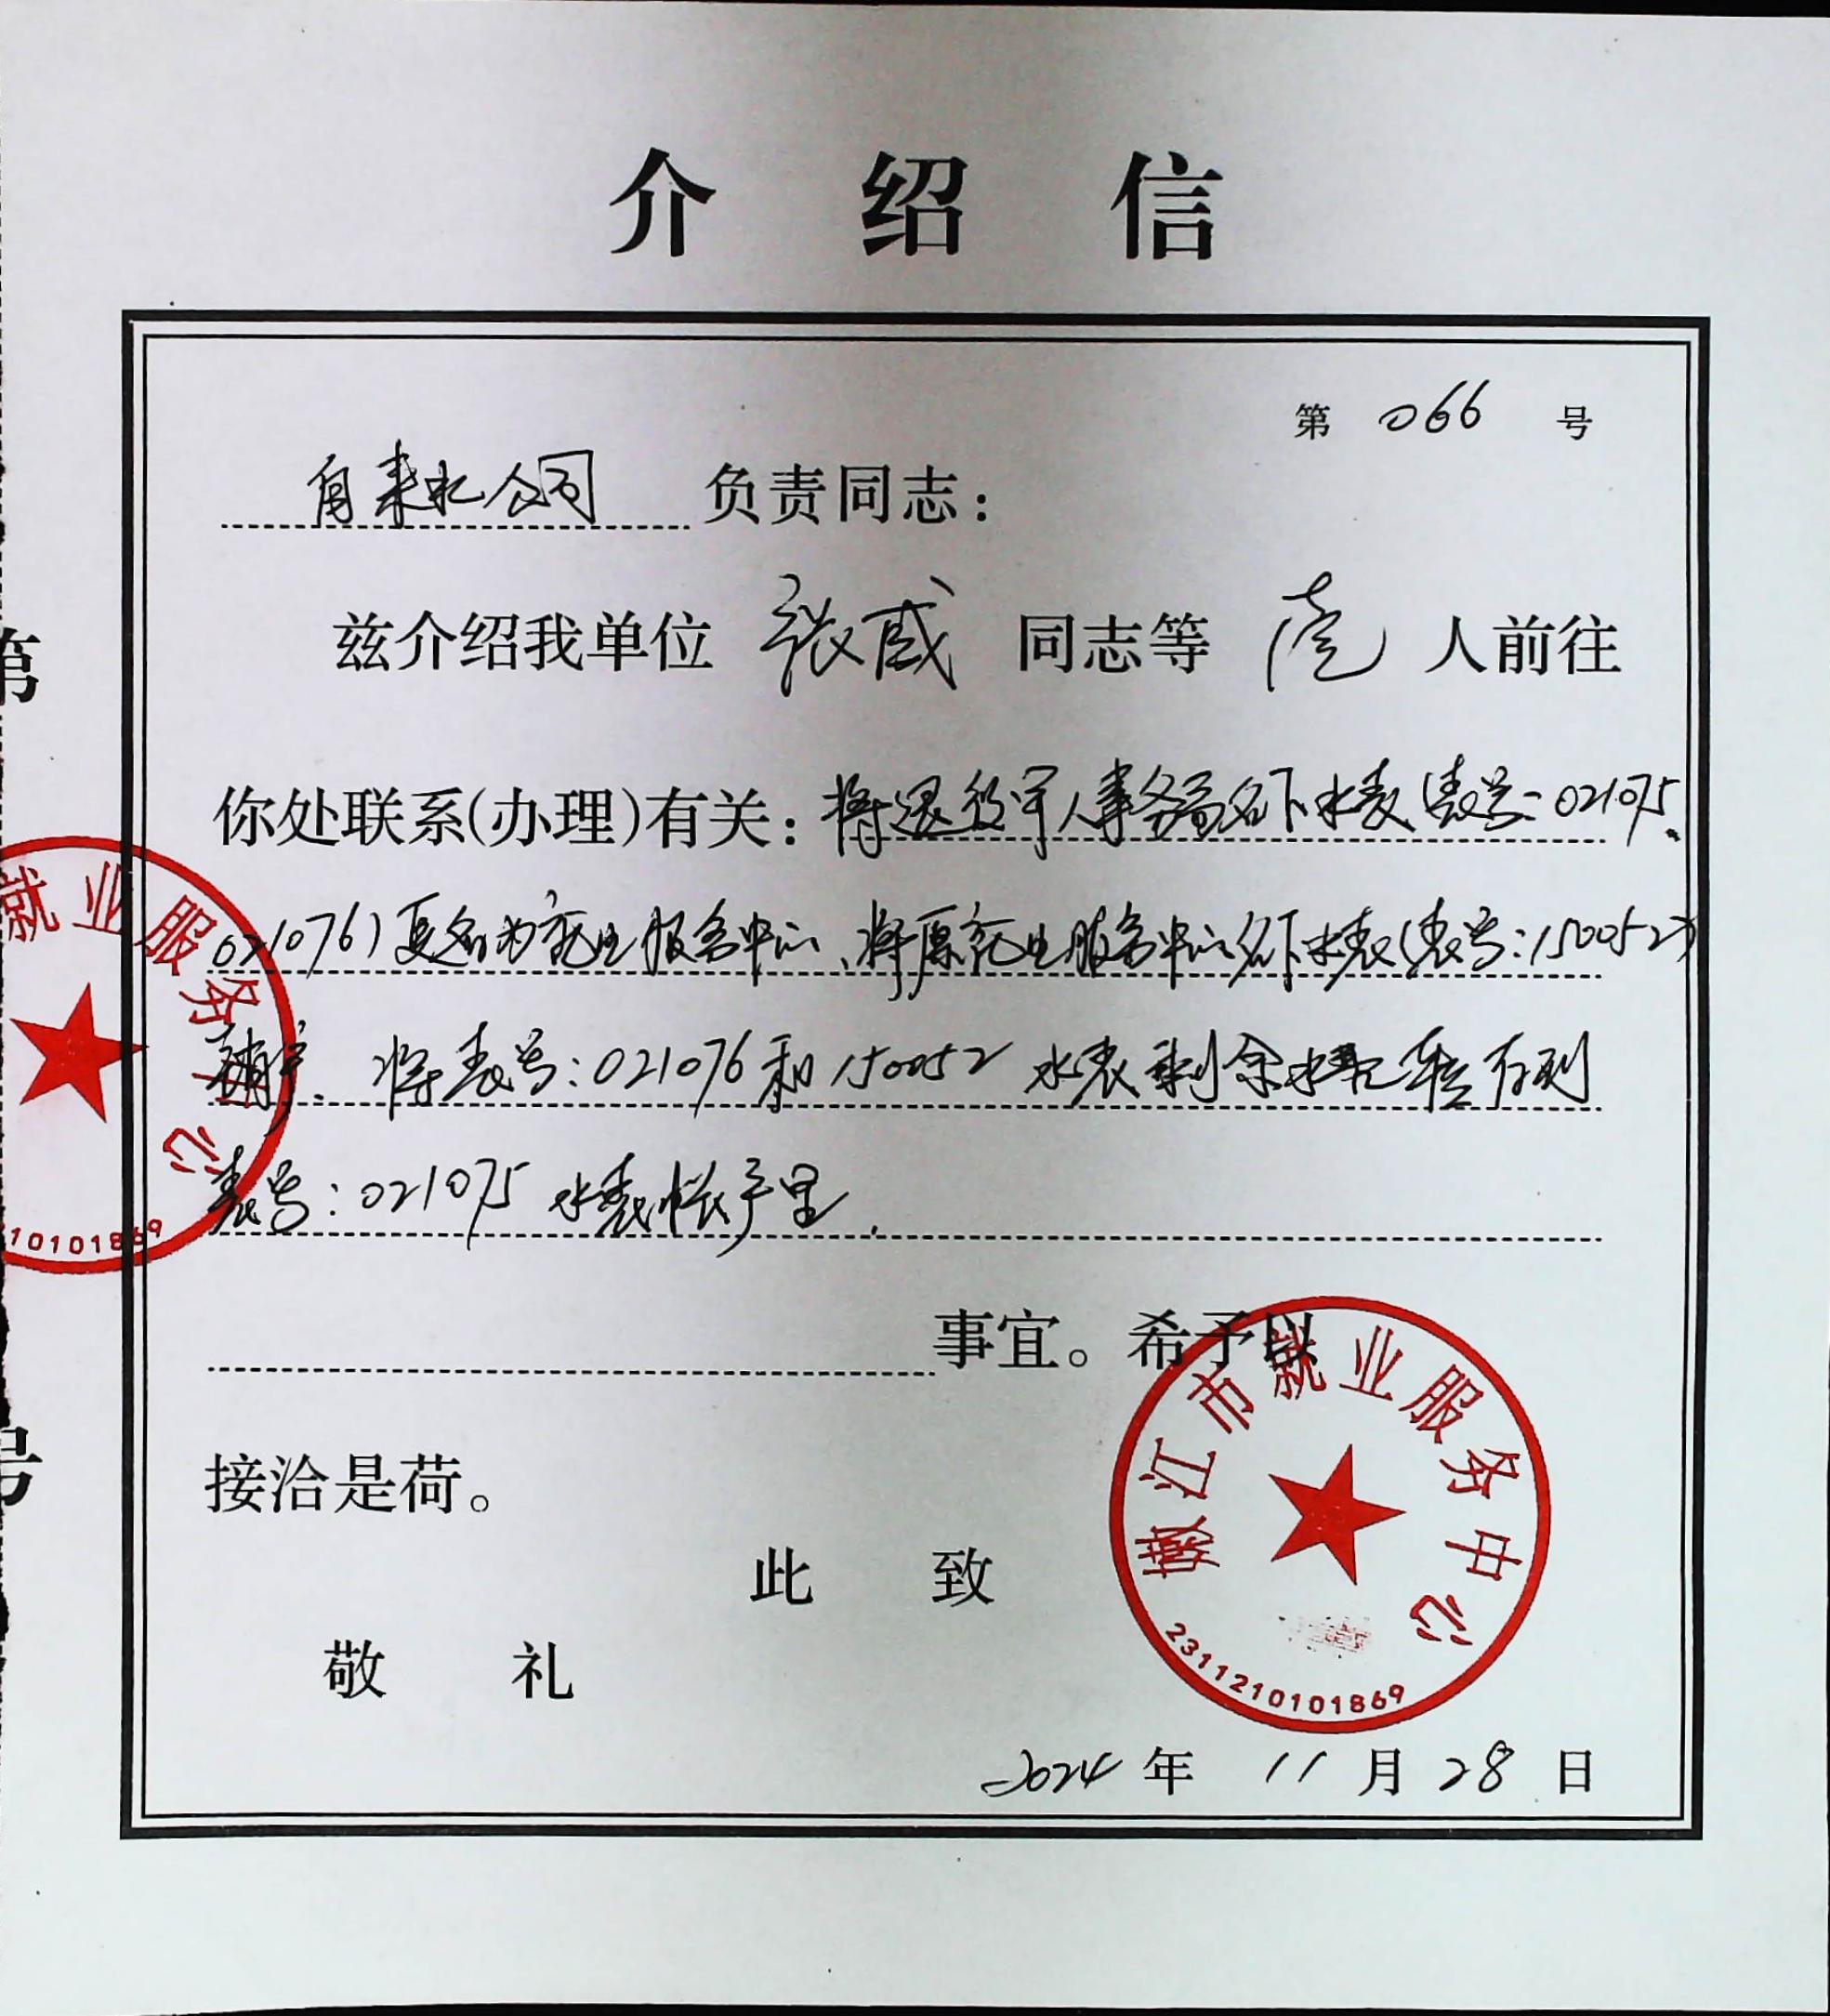 介绍信
第 066 号
自来水公司 负责同志：
兹介绍我单位 张威 同志等 壹 人前往
你处联系(办理)有关：将退役军人事务局名下水表(表号:021075、
021076)更名为就业服务中心、将原就业服务中心名下水表(表号:150052)
销户、将表号:021076和150052 水表剩余水费转存到
表号:021075 水表帐户里.
事宜。希予以
接洽是荷。
此致
敬礼
2024 年 11 月 28 日
嫩江市就业服务中心
2311210101869
第
号
就业服务中心
10101869